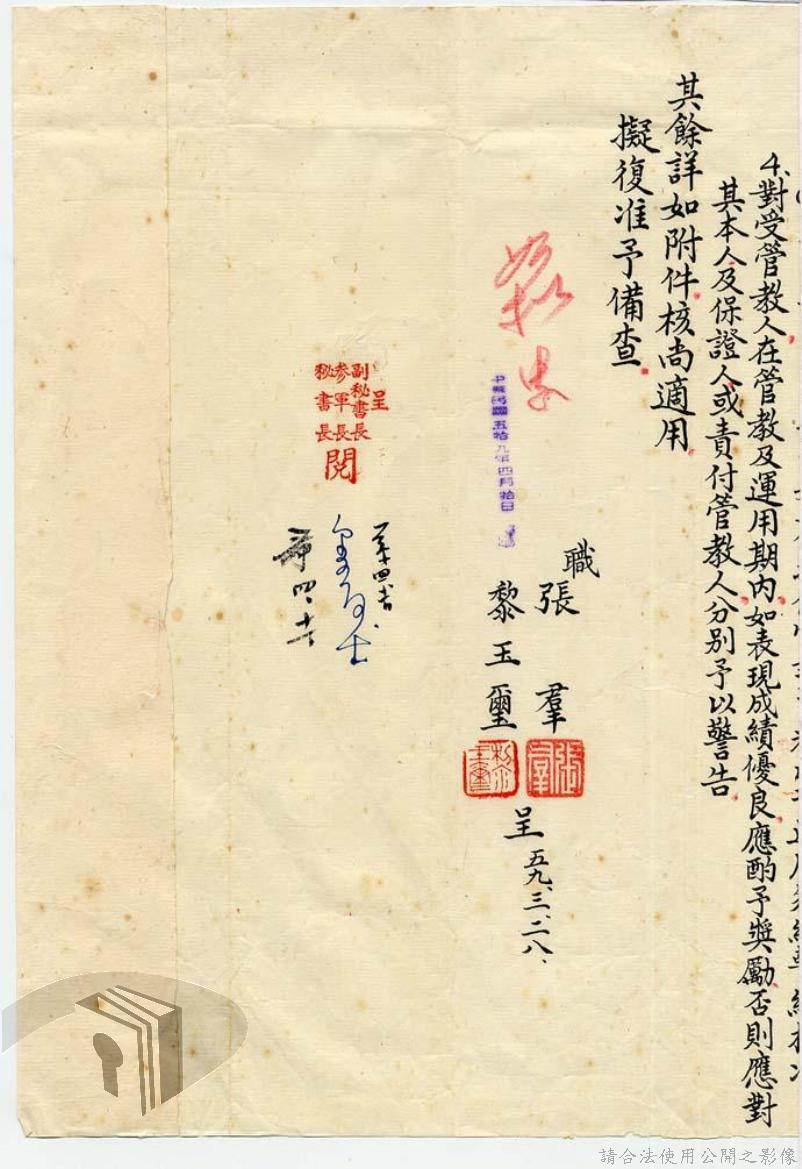 4.對受管教人在管教及運用期內如表現成績優良應酌予獎勵否則應對
其本人及保證人或責付管教人分別予以警告
其餘詳如附件核尚適用
擬復准予備查
職
張羣
黎玉璽
呈
五九、三、二八、
中華民國五拾九年四月拾日
呈
副秘書長
參軍長
秘書長
閱
請合法使用公開之影像